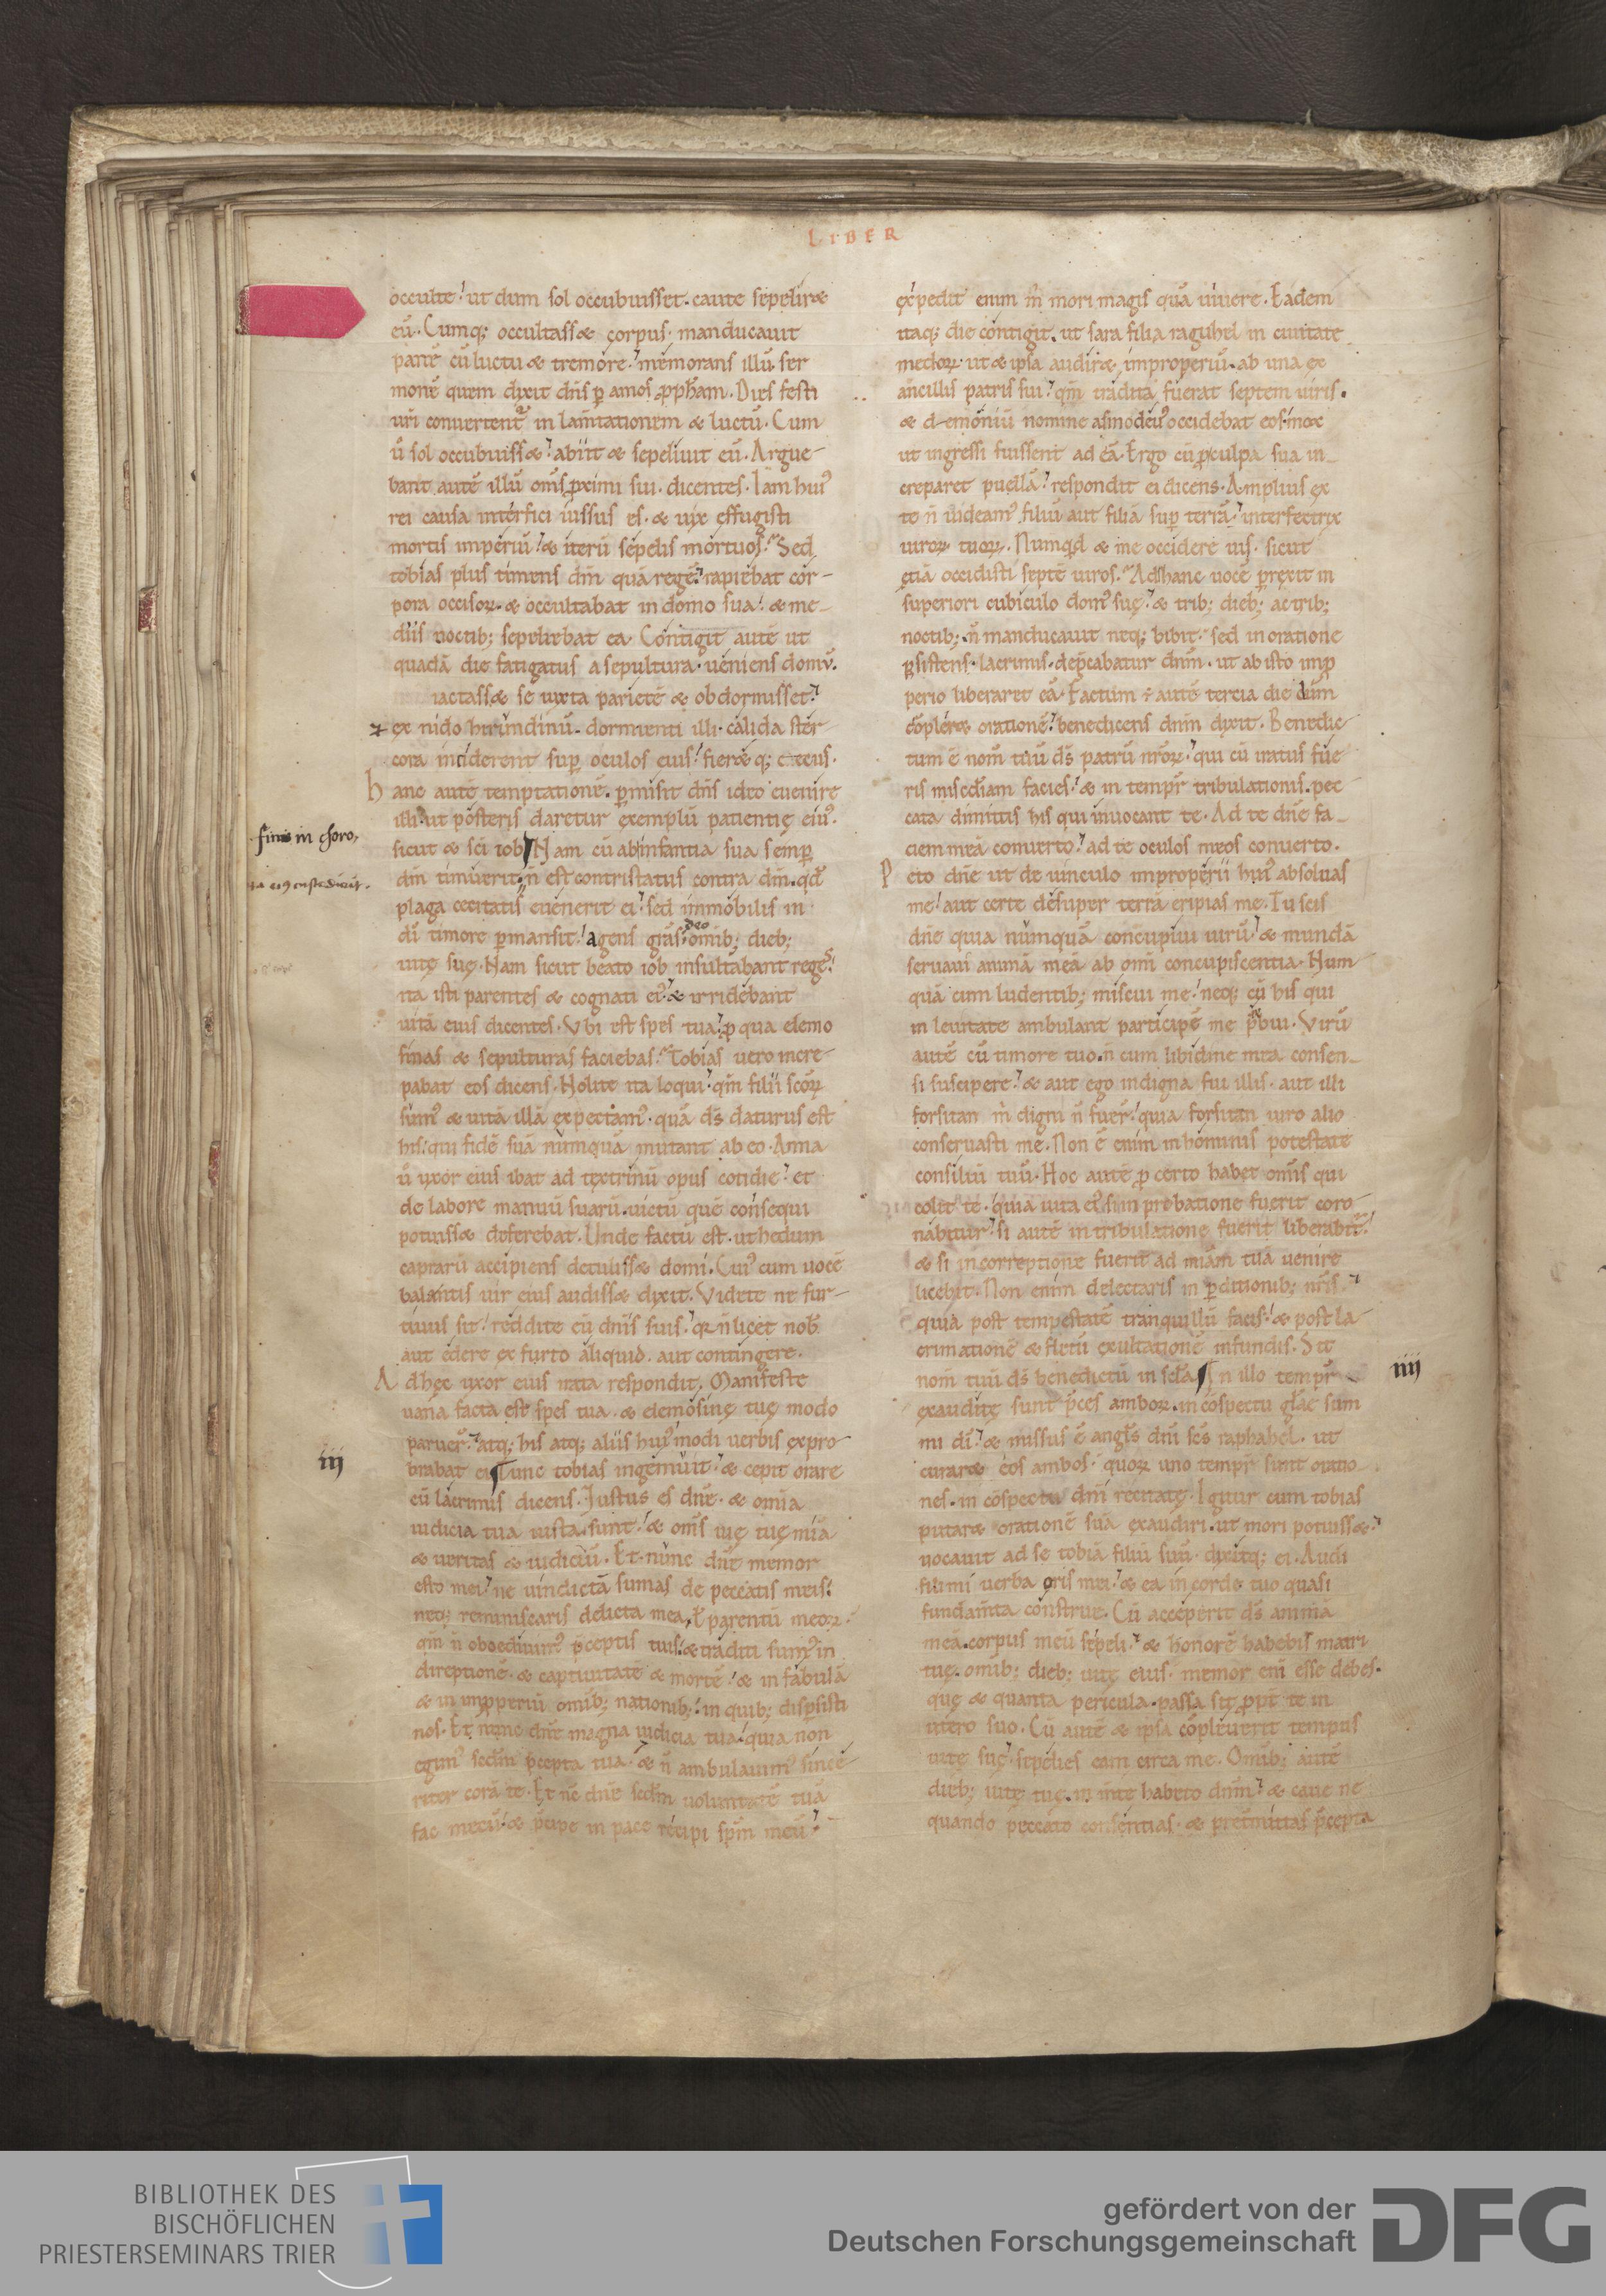 LIBER
occulte. ut dum sol occubuisset. caute sepeliret
eū. Cumq; occultasset corpus. manducauit
panē cū luctu & tremore. memorans illū ser
monē quem dixit dn̄s p̱ amos ꝓph̄am. Dies festi
uri conuertent᷑ in lam̄tationem & luctū. Cum
ů sol occubuisset. abiit & sepeliuit eū. Argue-
bant autē illū om̄s ꝓximi sui. dicentes. Iam hui᷒
rei causa interfici iussus es. & uix effugisti
mortis imperiū. & iterū sepelis mortuos. Sed
tobias plus timens dm̄ quā regē. rapiebat cor-
pora occisoꝝ. & occultabat in domo sua. & me-
diis noctib; sepeliebat ea. Contigit autē ut
quadā die fatigatus a sepultura. ueniens domū.
iactasset se iuxta parietē & obdormisset.
& ex nido hirundinū. dormienti illi. calida ster-
cora inciderent sup̱ oculos eius. fieretq; cecus.
hanc autē temptationē. p̱misit dn̄s ideo euenire
illi. ut posteris daretur exemplū patientię ei᷒.
finis in choro,
sicut & sc̄i iob. Nam cū ab infantia sua semp̱
dm̄ timuerit. n̄ est contristatus contra dm̄. qđ
plaga cecitatis euenerit ei. sed immobilis in
dī timore p̱mansit. agens grās deo omib; dieb;
uitę suę. Nam sicut beato iob insultabant reges.
ita isti parentes & cognati ei᷒. & irridebant
uitā eius dicentes. Vbi est spes tua. ꝓ qua elemo
sinas & sepulturas faciebas. Tobias uero incre-
pabat eos dicens. Nolite ita loqui. qm̄ filii scōꝝ
sum᷒ & uitā illā expectam᷒. quā ds̄ daturus est
his. qui fidē suā numquā mutant ab eo. Anna
ů uxor eius ibat ad textrinū opus cotidie. et
de labore manuū suarū. uictū quē consequi
potuisset deferebat. Unde factū est. ut hedum
caprarū accipiens detulisset domi. Cui᷒ cum uocē
balantis uir eius audisset dixit. Videte ne fur-
tiuus sit. reddite eū dn̄is suis. qꝛ n̄ licet nob̄
aut edere ex furto aliquid. aut contingere.
Ad hęc uxor eius irata respondit. Manifeste
uana facta est spes tua. & elemosinę tuę modo
paruer̄. atq; his atq; aliis hui᷒modi uerbis expro-
iij
brabat ei. Tunc tobias ingemuit. & cepit orare
cū lacrimis dicens. Iustus es dn̄e. & omīa
iudicia tua iusta sunt. & om̄s uię tuę mīa
& ueritas & iudiciū. Et nunc dn̄e memor
esto mei. ne uindictā sumas de peccatis meis.
neq; reminiscaris delicta mea. ł parentū meoꝝ.
qm̄ n̄ oboediuim᷒ p̄ceptis tuis. & traditi sum᷒ in
direptionē. & captiuitatē & mortē. & in fabulā
& in improperiū omib; nationib;. in quib; disp̱sisti
nos. Et nunc dn̄e magna iudicia tua. quia non
egim᷒ secdm̄ p̄cepta tua. & n̄ ambulauim᷒ since-
riter corā te. Et nc̄ dn̄e secdm̄ voluntatē tuā
fac mecū. & p̄cipe in pace recipi sp̄m meū.
expedit enim m̄ mori magis quā uiuere. Eadem
itaq; die contigit. ut sara filia raguhel in ciuitate
medoꝝ. ut & ipsa audiret improperiū. ab una ex
ancillis patris sui. qm̄ tradita fuerat septem uiris.
& demoniū nomine asmodeus occidebat eos. mox
ut ingressi fuissent ad eā. Ergo cū ꝓ culpa sua in-
creparet puellā. respondit ei dicens. Amplius ex
te n̄ uideam᷒ filiū aut filiā sup̱ terrā. interfectrix
uiroꝝ tuoꝝ. Numqđ & me occidere uis. sicut
etiā occidisti septē uiros. Ad hanc uocē p̱rexit in
superiori cubiculo dom᷒ suę. & trib; dieb; ac trib;
noctib; n̄ manducauit neq; bibit. sed in oratione
p̱sistens. lacrimis. dep̄cabatur dn̄m. ut ab isto imp̱
perio liberaret eā. Factum ē autē tercia die dum
cōpleret orationē. benedicens dn̄m dixit. Benedic-
tum ē nom̄ tuū ds̄ patrū nr̄oꝝ. qui cū iratus fue-
ris misc̄diam facies. & in tempr̄ tribulationis. pec-
cata dimittis his qui inuocant te. Ad te dn̄e fa-
ciem meā conuerto. ad te oculos meos conuerto.
Peto dn̄e ut de uinculo improperii hui᷒ absoluas
me. aut certe desuper terrā eripias me. Tu scis
dn̄e quia numquā concupiui uirū. & mundā
seruaui animā meā ab omī concupiscentia. Num-
quā cum ludentib; miscui me. neq; cū his qui
in leuitate ambulant participē me p̄bui. Virū
autē cū timore tuo. n̄ cum libidine mea consen-
si suscipere. & aut ego indigna fui illis. aut illi
forsitan m̄ digni n̄ fuer̄. quia forsitan uiro alio
conseruasti me. Non ē enim in hominis potestate
consiliū tuū. Hoc autē ꝓ certo habet om̄is qui
colit te. quia uita ei᷒ si in probatione fuerit coro-
nabitur. si autē in tribulatione fuerit liberabit᷑.
& si in correptione fuerit ad mīam tuā uenire
licebit. Non enim delectaris in p̱ditionib; nr̄is.
quia post tempestatē tranquillū facis. & post la-
crimationē & fletū exultationē infundis. Sit
iiij
nom̄ tuū ds̄ benedictū in scl̄a. In illo tempr̄
exauditę sunt p̄ces amboꝝ. in cōspectu gl̄ae sum
mi dī. & missus ē angl̄s dn̄i sc̄s raphahel. ut
curaret eos ambos. quoꝝ uno tempr̄ sunt oratio-
nes. in cōspectu dn̄i recitatę. Igitur cum tobias
putaret orationē suā exaudiri. ut mori potuisset.
uocauit ad se tobiā filiū suū. dixitq; ei. Audi
fili mi uerba oris mei. & ea in corde tuo quasi
fundam̄ta construe. Cū acceperit ds̄ animā
meā. corpus meū sepeli. & honorē habebis matri
tuę. omib; dieb; uitę eius. memor enī esse debes.
quę & quanta pericula. passa sit ꝓpt̄ te in
utero suo. Cū autē & ipsa cōpleuerit tempus
uitę suę. sepelies eam circa me. Omib; autē
dieb; uitę tuę. in m̄te habeto dn̄m. & caue ne
quando peccato consentias. & pretmittas p̄cepta
BIBLIOTHEK DES
BISCHÖFLICHEN
PRIESTERSEMINARS TRIER
gefördert von der
Deutschen Forschungsgemeinschaft
DFG